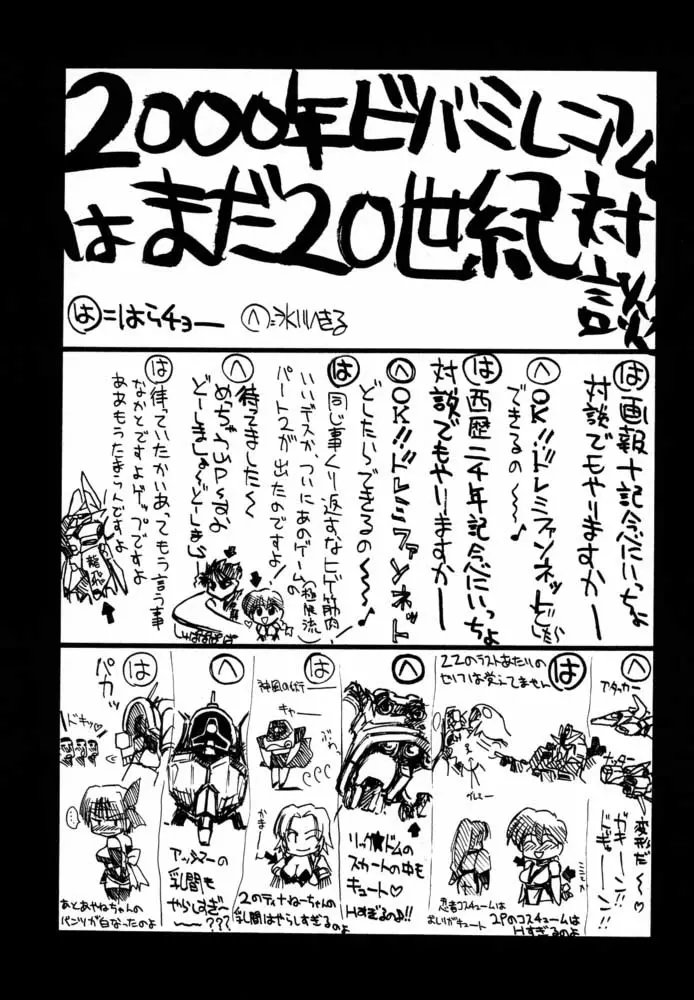 2000年ビバミレニアム
はまだ20世紀対談
は=はらチョー
へ=氷川へきる
は 画報十記念にいっちょ
対談でもやりますかー
へ OK!!ドレミファンネットどしたら
できるの〜〜〜♪
は 西歴二千年記念にいっちょ
対談でもやりますかー
へ OK!!ドレミファンネット
どしたらできるの〜〜〜♪
は 同じ事くり返すなヒゲ筋肉
(極限流)
いいデスか、ついにあのゲームの
パート2が出たのですよ!
へ 待ってました〜
めっちゃUPっすよ
どーしましょ〜どーしましょ
は 待っていたかいあってもう言う事
なかとですよゲップですよ
ああもうたまらんですよ
龍飛
ぱぱぱぱ
へ
アタッカー
ナッター
変形だ〜♡
ガキーン!!
ドギューン!!
は
ZZのラストあたりの
セリフは覚えてません
忍者コスチュームは
おしりがキュート
2Pのコスチュームは
Hすぎるのよ
へ
リック★ドムの
スカートの中も
キュート♡
Hすぎるのよ!!
は
神風の術ー
キャー
ぶわっ
かまーん
2のティナねーちゃんの
乳間はやらしすぎるのよ
へ
アッシマーの
乳間も
やらしすぎ〜
〜〜???
は
パカッ
ドキッ♡
…
あとあやねちゃんの
パンツが白なったのよ